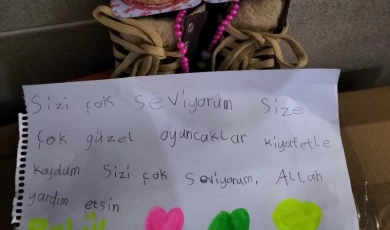 Sizi çok seviyorum Size
çok güzel oyuncaklar kıyafetle
koydum Sizi çok seviyorum, Allah
yardım etsin